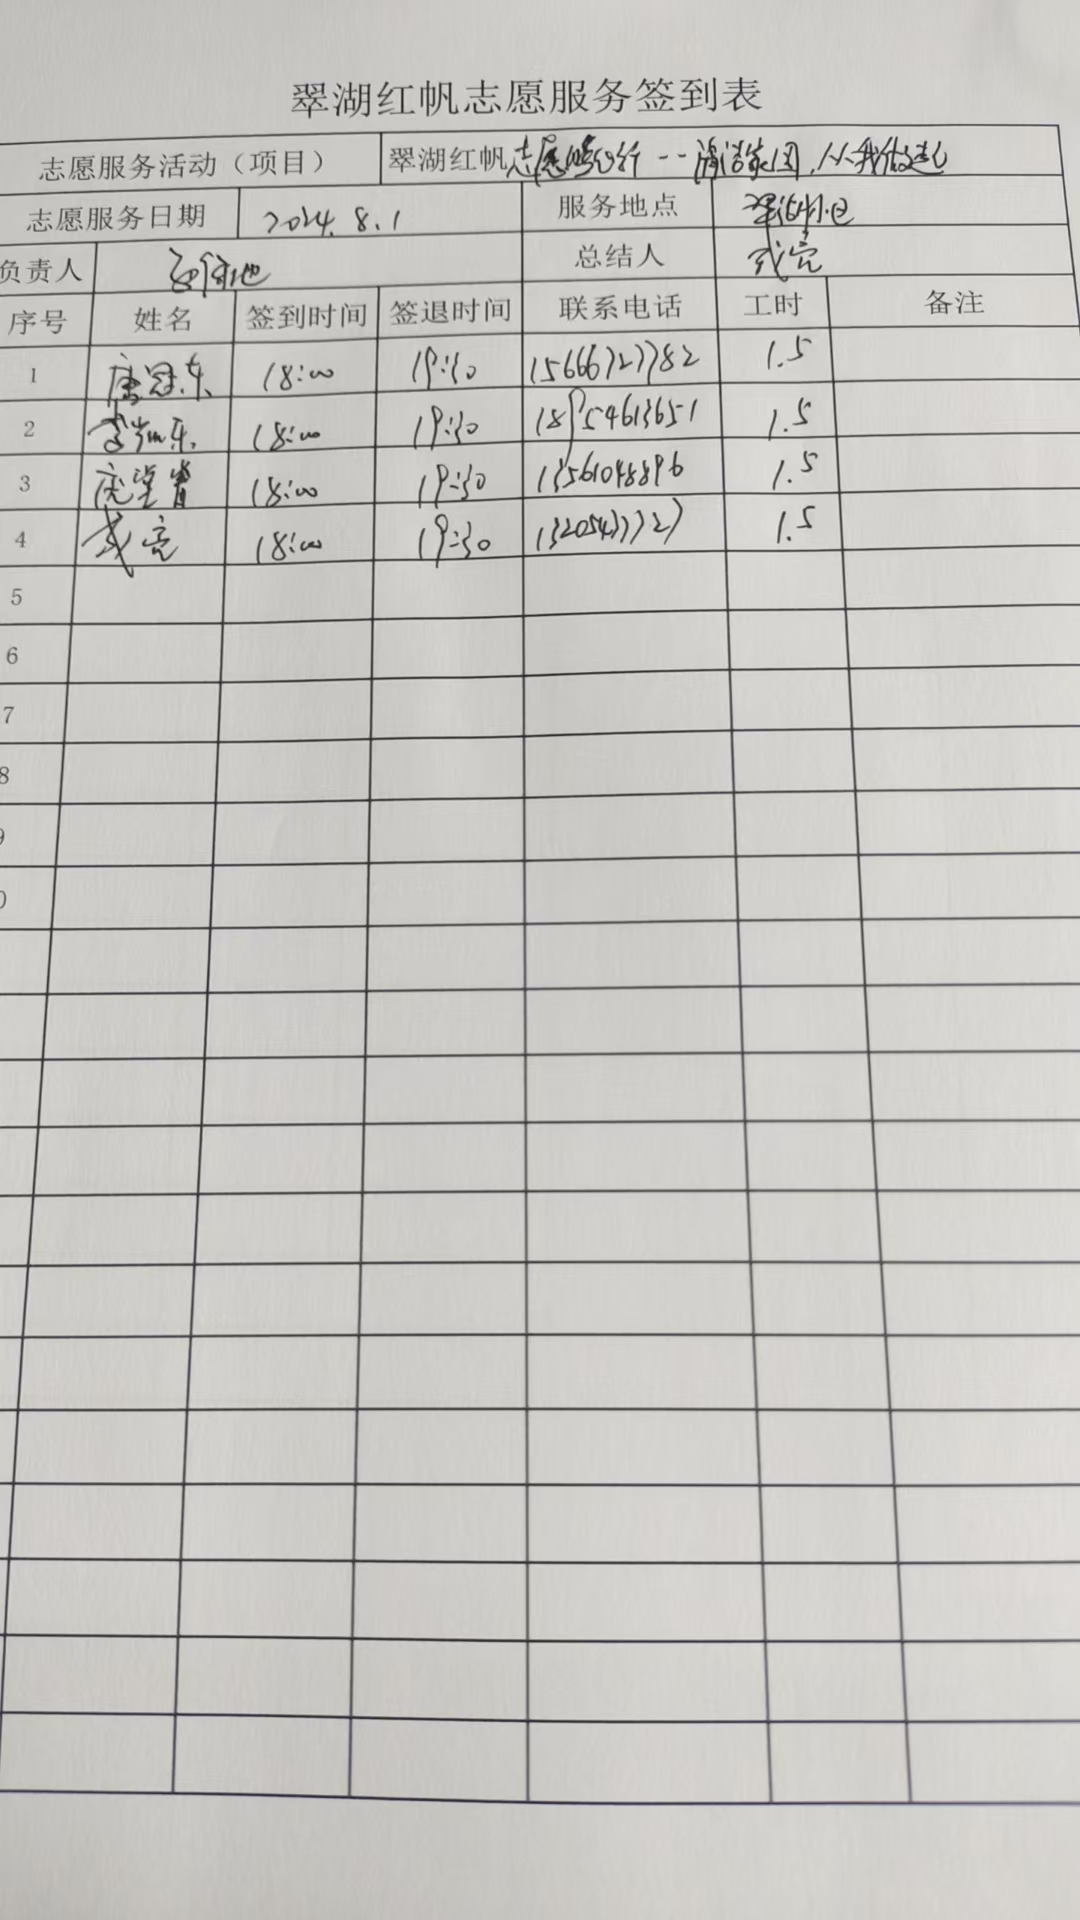 翠湖红帆志愿服务签到表
志愿服务活动（项目） 翠湖红帆志愿 行--清洁家园,从我做起
志愿服务日期 2024.8.1 服务地点 翠湖小区
负责人 总结人 武亮
序号 姓名 签到时间 签退时间 联系电话 工时 备注
1 唐冠东 18:00 19:30 15666727782 1.5
2 18:00 19:30 18954613651 1.5
3 18:00 19:30 13561048896 1.5
4 武亮 18:00 19:30 13205437727 1.5
5
6
7
8
9
0